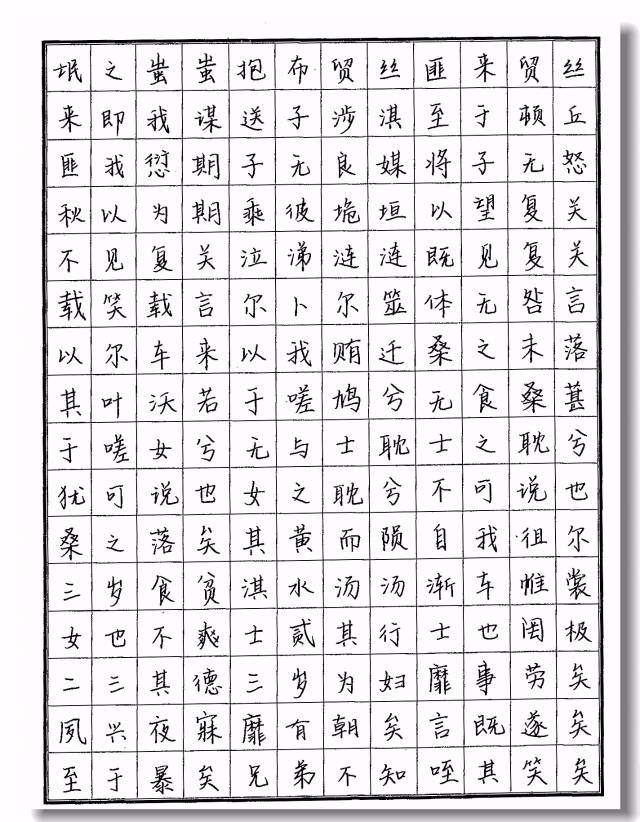 氓之蚩蚩抱布贸丝匪来贸丝
来即我谋送子涉淇至于顿丘
匪我愆期子无良媒将子无怒
秋以为期乘彼垝垣以望复关
不见复关泣涕涟涟既见复关
载笑载言尔卜尔筮体无咎言
以尔车来以我贿迁桑之未落
其叶沃若于嗟鸠兮无食桑葚
于嗟女兮无与士耽士之耽兮
犹可说也女之耽兮不可说也
桑之落矣其黄而陨自我徂尔
三岁食贫淇水汤汤渐车帷裳
女也不爽士贰其行士也罔极
二三其德三岁为妇靡事劳矣
夙兴夜寐靡有朝矣言既遂矣
至于暴矣兄弟不知咥其笑矣